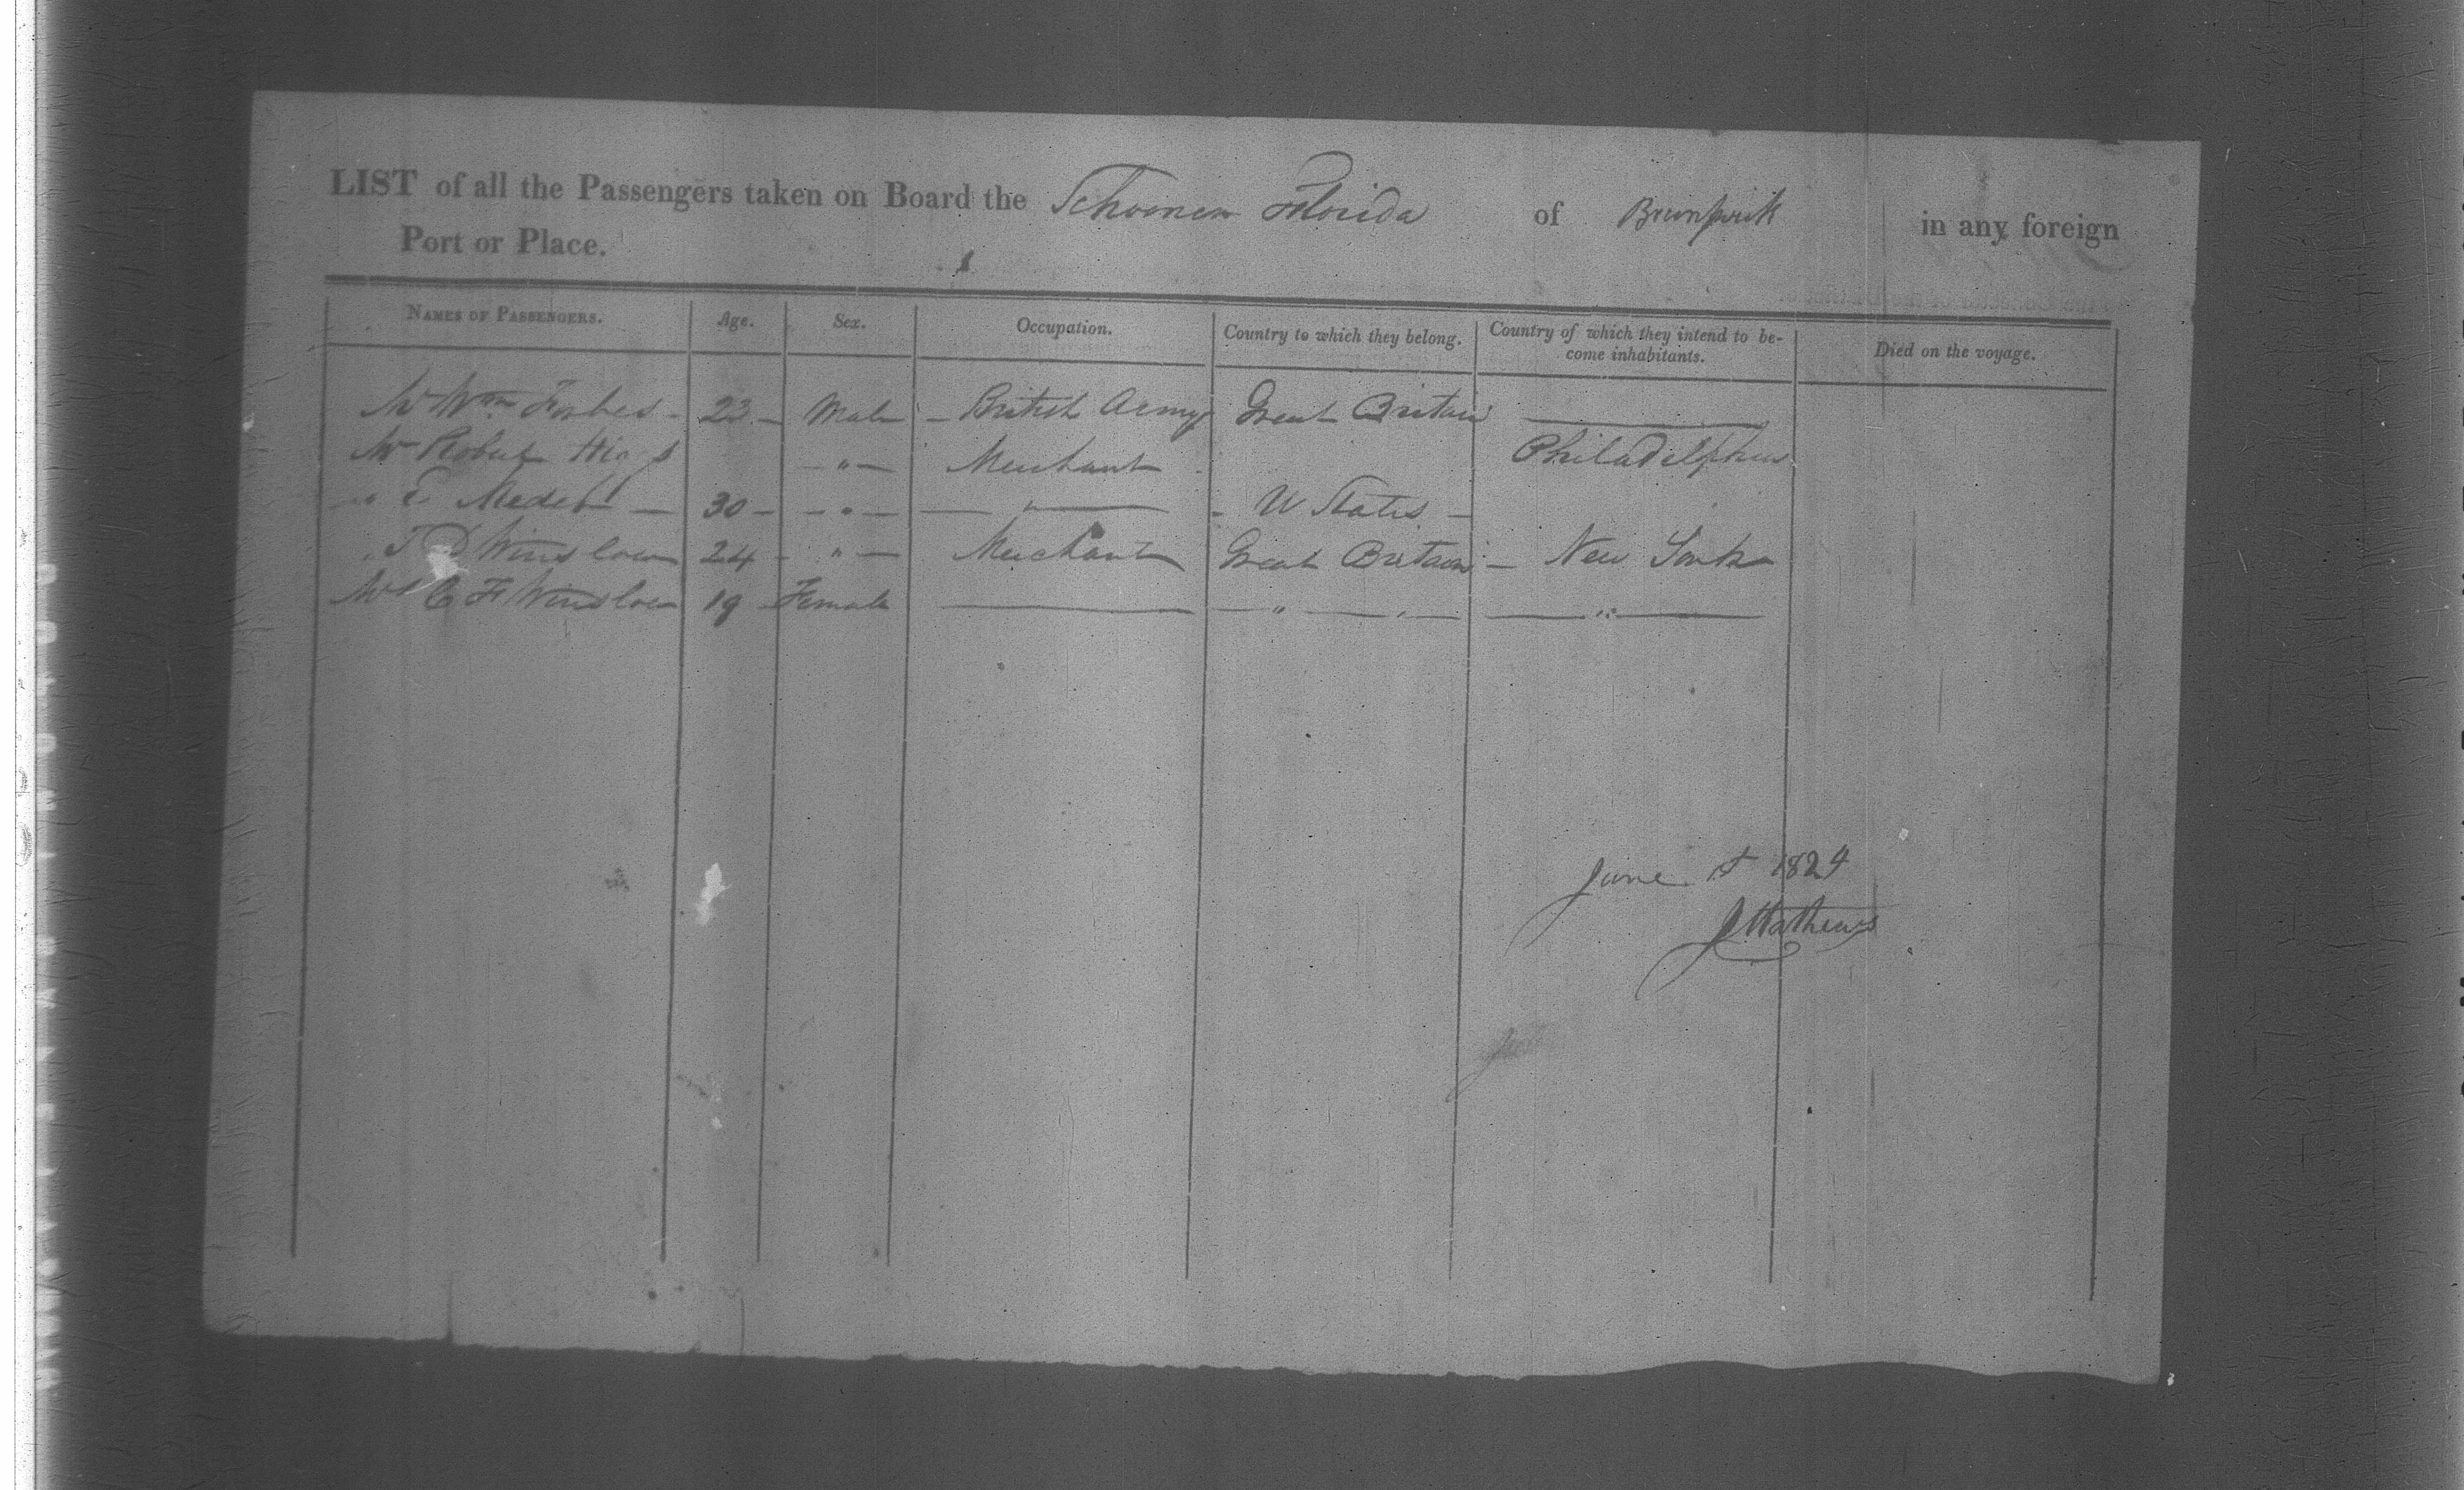 LIST of all the Passengers taken on Board the Schooner Florida of Brunswick in any foreign
Port or Place.
NAMES OF PASSENGERS. Age. Sex. Occupation. Country to which they belong. Country of which they intend to be-
come inhabitants. Died on the voyage.
Mr Wm Forbes - 23 - Male - British Army Great Britain ———
Mr Robert — " — Merchant Philadelphia
" E — 30 - - " — — " — - U States -
" Winslow 24 - " — Merchant Great Britain - New York
Mrs C F Winslow 19 Female ——— — " — " — — " —
June 1st 1824
J Mathews